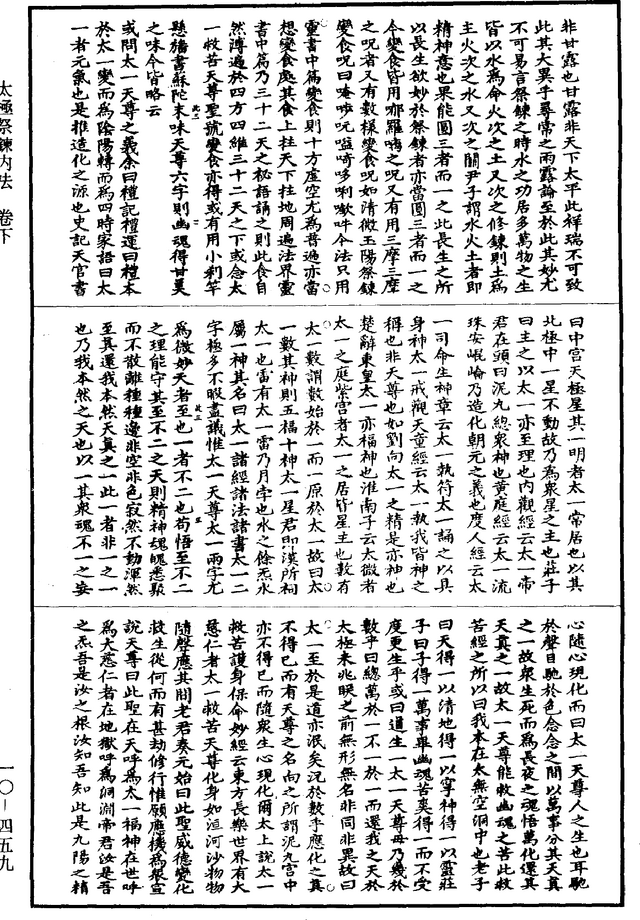 非甘露也甘露非天下太平此祥瑞不可致
此其大異乎尋常之雨露論至於此其妙尤
不可易言祭鍊之時水之功居多萬物之生
皆以水為命火次之土又次之修鍊則土為
主火次之水又次之關尹子謂水火土者即
精神意也果能圓三者而一之此長生之所
以長生欲妙於祭鍊者亦當圓三者而一之
今變食皆用唧囉嗨之呪又有用三摩三摩
之呪者又有數樣變食呪如清微玉陽祭鍊
變食呪曰唵 呪嗌 哆唎 吽今法只用
靈書中篇變食則十方虛空尤為普遍亦當
想變食處其食上拄天下拄地周遍法界靈
書中篇乃三十二天之秘語誦之則此食自
然溥遍於四方四維三十二天之下或念太
一救苦天尊聖號變食亦得或有用小刹竿
懸旛書蘇陀未味天尊六字則幽魂得甘美
之味今皆略云
或問太一天尊之義余曰禮記禮運曰禮本
於太一變而為陰陽轉而為四時家語曰太
一者元氣也是推造化之源也史記天官書
曰中宮天極星其一明者太一常居也以其
北極中一星不動故乃為衆星之主也莊子
曰主之以太一亦至理也內觀經云太一帝
君在頭曰泥丸總衆神也黃庭經云太一流
珠安崐崘乃造化朝元之義也度人經云太
一司命生神章云太一執符太一誦之以具
身神太一戒觀天童經云太一執我皆神之
稱也非天尊也如劉向太一之精是亦神也
楚辭東皇太一亦福神也淮南子云太微者
太一之庭紫宮者太一之居皆星主也數有
太一數謂數始於一而一原於太一故曰太
一數其神則五福十神太一星君即漢所祠
太一也雷有太一雷乃月孛也水之餘炁水
屬一神其名曰太一諸經諸法諸書太一二
字極多不暇盡議惟太一天尊太一兩字尤
為微妙天者至也一者不二也苟悟至不二
之理能守其至不二之天則精神魂魄悉聚
而不散離種種邊非空非色寂然不動渾然
至真還我本然天真之一此一者非一之一
也乃我本然之天也以一其衆魂不一之妄
心隨心現化而曰太一天尊人之生也耳馳
於聲目馳於色念念之間以萬事分其天真
之一故衆生死而為長夜之魂悟萬化還其
天真之一故太一天尊能救幽魂之苦此救
苦經之所以曰我本在太無空洞中也老子
曰天得一以清地得一以寧神得一以靈莊
子曰子得一萬事畢幽魂苦矣得一而不受
度更生乎或曰道生一太一天尊毋乃幾於
數乎曰總萬於一不一於一而還我之天於
太極未兆眹之前無形無名非同非異故曰
太一至於是道亦泯矣況於數乎應化之真
不得已而有天尊之名向之所謂泥丸宮中
亦不得已而隨衆生心現化爾太上說太一
救苦護身保命妙經云東方長樂世界有大
慈仁者太一救苦天尊化身如洹河沙物物
隨聲應其間老君奏元始曰此聖威德變化
救生從何而有甚劫修行惟願應機為衆宣
說天尊曰此聖在天呼為太一福神在世呼
為大慈仁者在地獄呼為洞淵帝君汝是吾
之炁吾是汝之根汝知吾知此是九陽之精
太極祭鍊內法 卷下
一〇－四五九